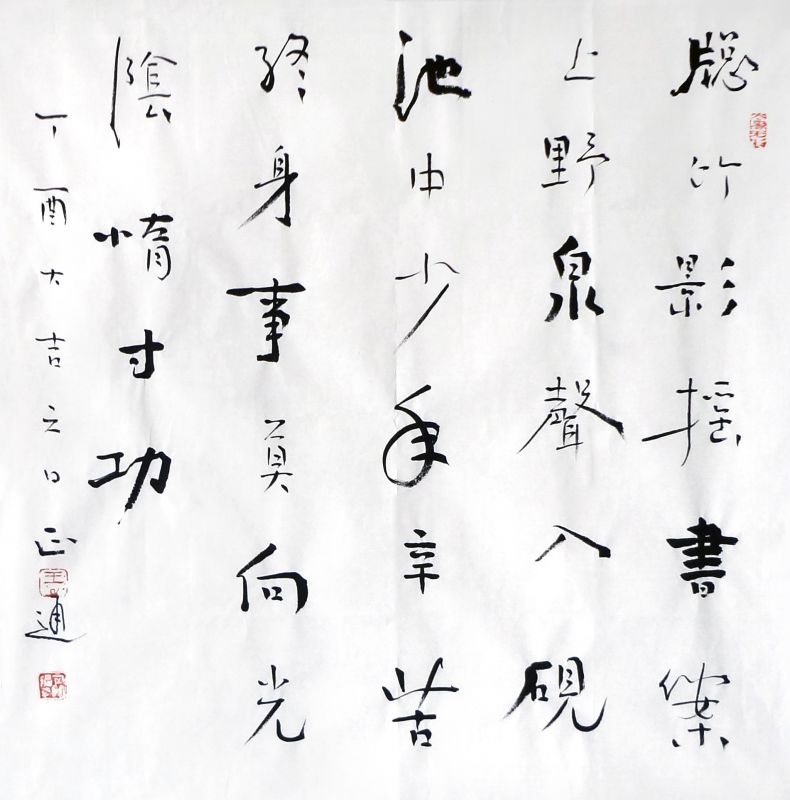 牕竹影搖書案
上野泉聲入硯
池中少年辛苦
終身事莫向光
陰惰寸功
丁酉大吉之日正通